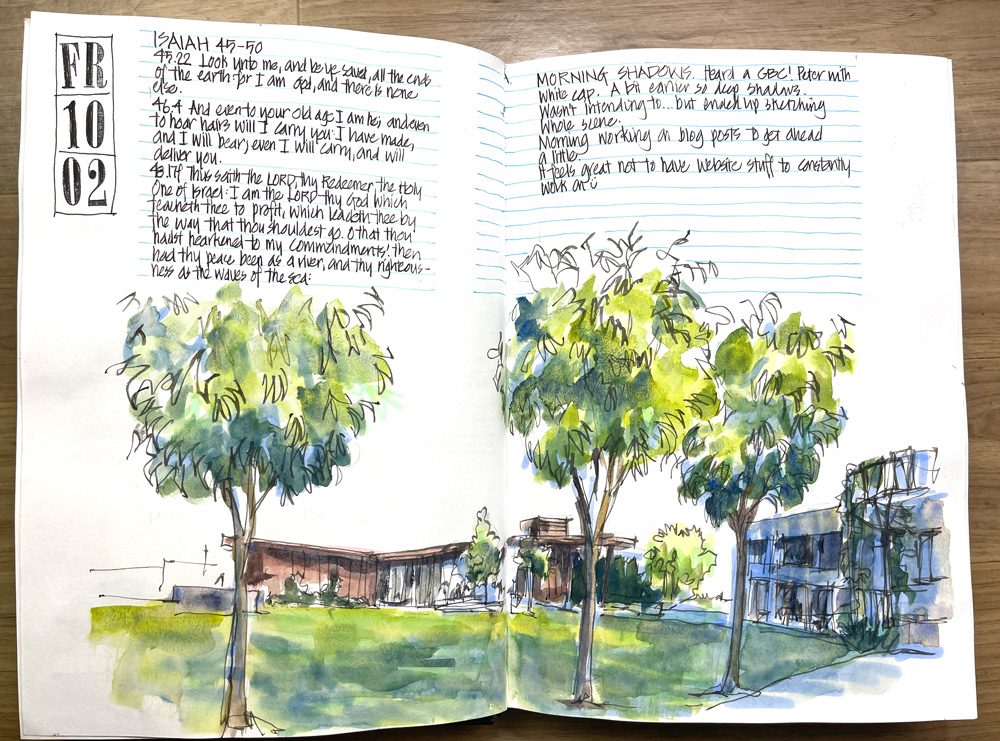 FR
10
02
ISAIAH 45-50
45.22 Look unto me, and be ye saved, all the ends
of the earth: for I am God, and there is none
else.
46.4 And even to your old age I am he; and even
to hoar hairs will I carry you: I have made,
and I will bear; even I will carry, and will
deliver you.
48.17f Thus saith the LORD, thy Redeemer, the Holy
One of Israel: I am the LORD thy God which
teacheth thee to profit, which leadeth thee by
the way that thou shouldest go. O that thou
hadst hearkened to my commandments! then
had thy peace been as a river, and thy righteous-
ness as the waves of the sea:
MORNING SHADOWS. Heard a GBC! Peter with
white cap. A bit earlier so deep shadows.
Wasn't intending to... but ended up sketching
whole scene.
Morning working on blog posts to get ahead
a little.
It feels great not to have website stuff to constantly
work on